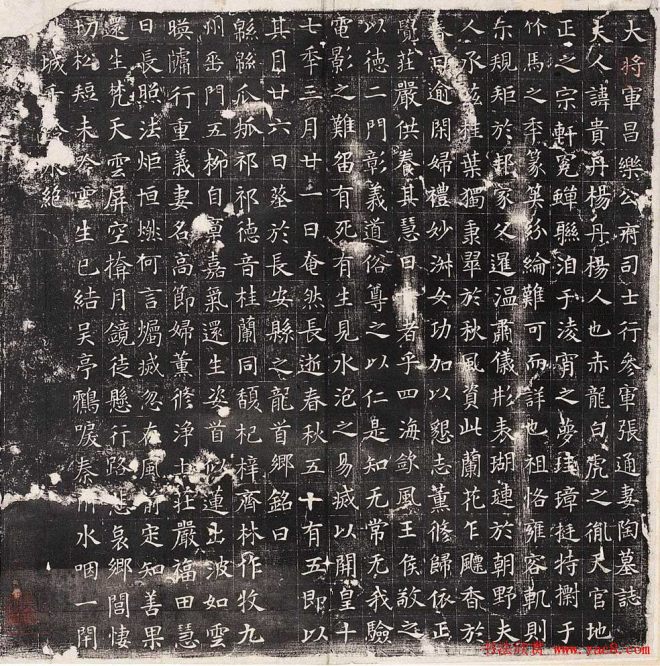 大將軍昌樂公府司士行參軍張通妻陶墓誌
夫人諱貴丹楊丹楊人也赤龍白虎之胤天官地
正之宗軒冕蟬聯洎于淩霄之夢珪璋挺特擢于
竹馬之秊篆筴紛綸難可而詳也祖恪雍容軌則
尔規矩於邦家父暹溫肅儀形表瑚璉於朝野夫
人承茲桂葉獨秉翠於秋風資此蘭花乍飄香於
春日逾閑婦禮妙洲女功加以懇志薰修歸依正
覺莊嚴供養其慧日十者乎四海欽風王侯敬之
以德二門彰義道俗尊之以仁是知无常无我驗
電影之難留有死有生見水泡之易滅以開皇十
七秊三月廿一日奄然長逝春秋五十有五即以
其月廿六日葬於長安縣之龍首鄉銘曰
緜緜瓜瓞祁祁德音桂蘭同馥杞梓齊林作牧九
州垂門五柳自嘉氣還生姿首似蓮出波如雲
暎牖行重義妻名高節婦薰修淨土莊嚴福田慧
日長照法炬恒燃何言燭滅忽在風前定知善果
還生梵天雲屏空掩月鏡徒懸行路悲哀鄉閭悽
切松短未吟雲生已結吳亭鶴唳秦川水咽一閇
城千永絕
书法欣赏 www.yac8.com